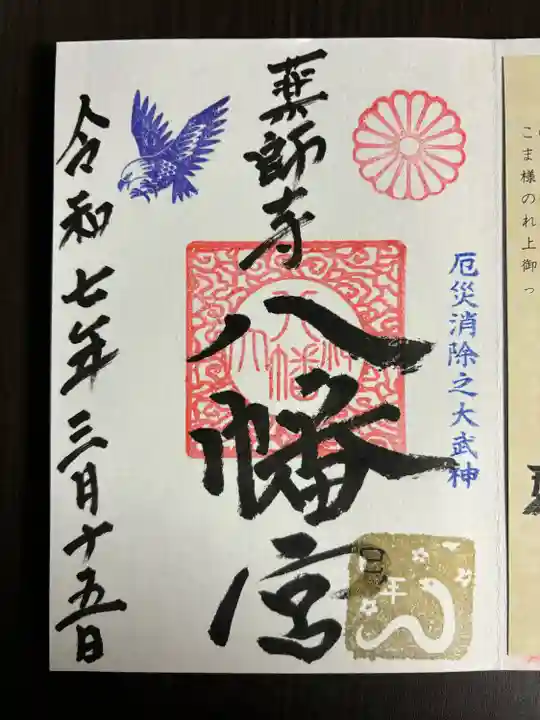 こま様のれ上御っ
厄災消除之大武神
薬師寺八幡宮
巳年
令和七年三月十五日